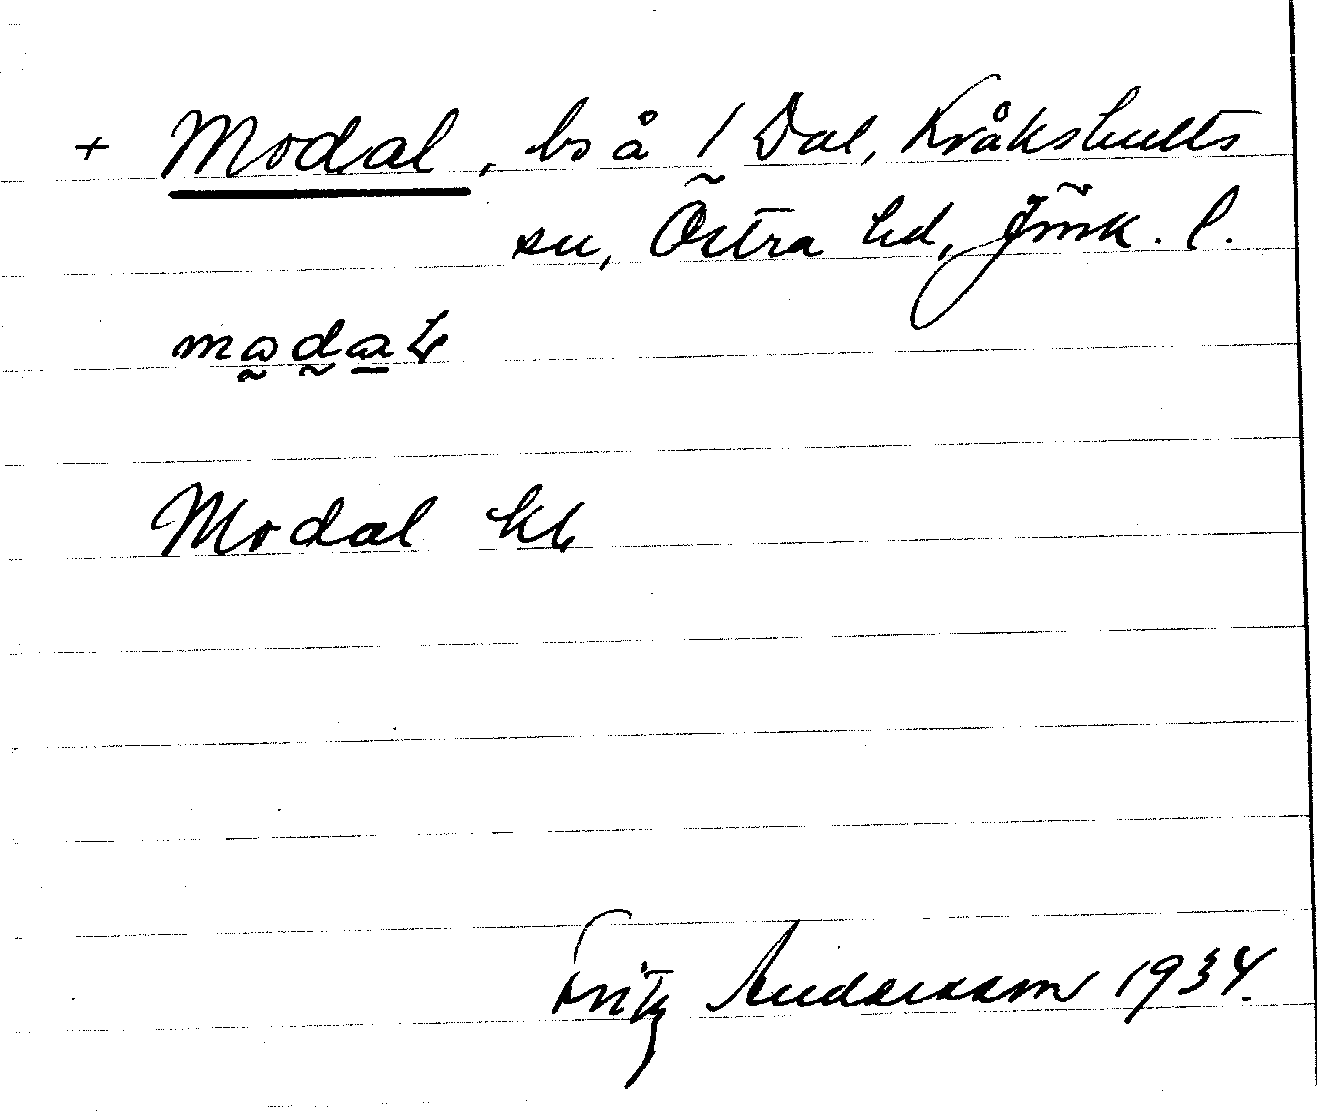 + Modal, bs å 1 Dal, Kråkshults
sn, Östra hd, Jönk. l.
Modal kk
Fritz Andersson 1934.